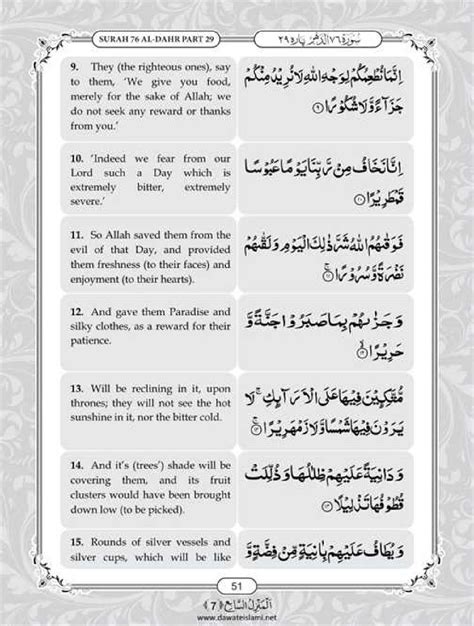 SURAH 76 AL-DAHR PART 29
سُوْرَة ٧٦ الدَّهْر پاره ٢٩
9. They (the righteous ones), say
to them, 'We give you food,
merely for the sake of Allah; we
do not seek any reward or thanks
from you.'
اِنَّمَا نُطْعِمُكُمْ لِوَجْهِ اللّٰهِ لَا نُرِيْدُ مِنْكُمْ
جَزَآءً وَّلَا شُكُوْرًا ﴿٩﴾
10. 'Indeed we fear from our
Lord such a Day which is
extremely bitter, extremely
severe.'
اِنَّا نَخَافُ مِنْ رَّبِّنَا يَوْمًا عَبُوْسًا
قَمْطَرِيْرًا ﴿١٠﴾
11. So Allah saved them from the
evil of that Day, and provided
them freshness (to their faces) and
enjoyment (to their hearts).
فَوَقٰىهُمُ اللّٰهُ شَرَّ ذٰلِكَ الْيَوْمِ وَ لَقّٰىهُمْ
نَضْرَةً وَّ سُرُوْرًا ﴿١١﴾
12. And gave them Paradise and
silky clothes, as a reward for their
patience.
وَ جَزٰىهُمْ بِمَا صَبَرُوْا جَنَّةً وَّ
حَرِيْرًا ﴿١٢﴾
13. Will be reclining in it, upon
thrones; they will not see the hot
sunshine in it, nor the bitter cold.
مُّتَّكِـِٕيْنَ فِيْهَا عَلَى الْاَرَآىِٕكِ ۚ لَا
يَرَوْنَ فِيْهَا شَمْسًا وَّ لَا زَمْهَرِيْرًا ﴿١٣﴾
14. And it's (trees') shade will be
covering them, and its fruit
clusters would have been brought
down low (to be picked).
وَ دَانِيَةً عَلَيْهِمْ ظِلٰلُهَا وَ ذُلِّلَتْ
قُطُوْفُهَا تَذْلِيْلًا ﴿١٤﴾
15. Rounds of silver vessels and
silver cups, which will be like
وَ يُطَافُ عَلَيْهِمْ بِاٰنِيَةٍ مِّنْ فِضَّةٍ وَّ
51
اَلْمَنْزِلُ السَّابِع ﴿7﴾
www.dawateislami.net